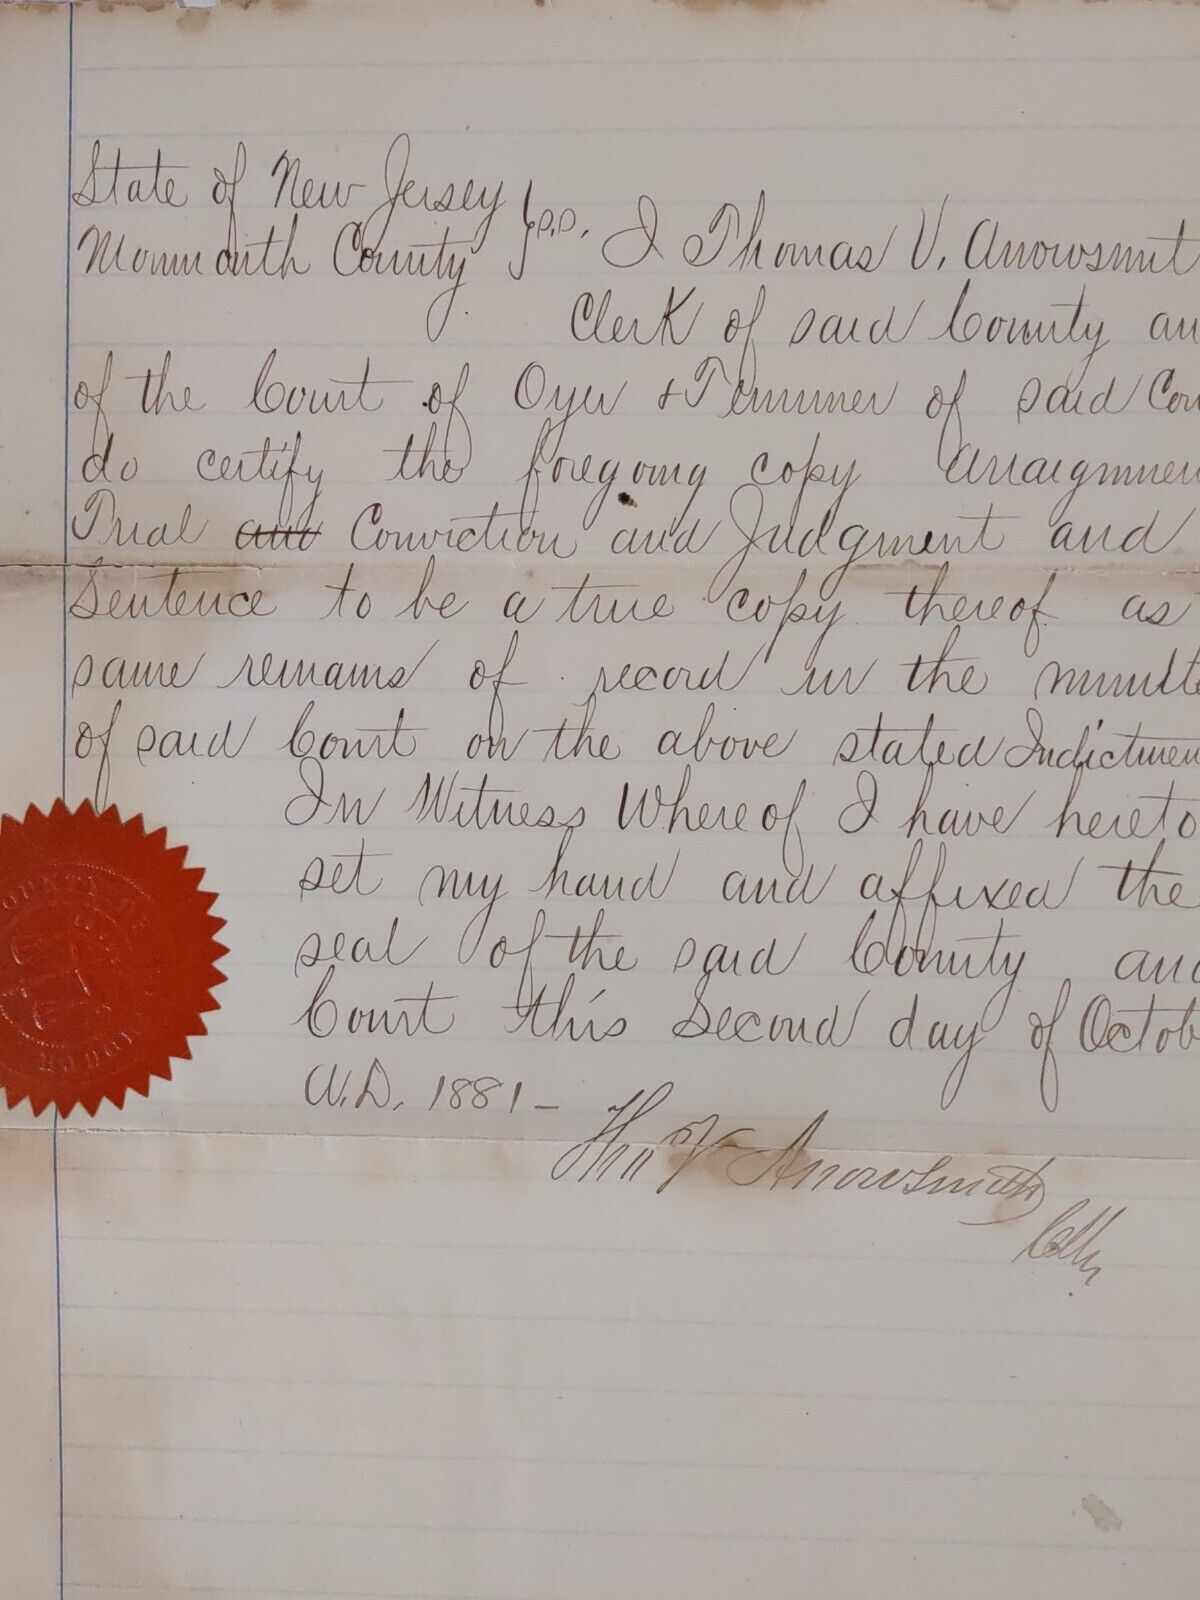 State of New Jersey } s.s.
Monmouth County } I Thomas V. Arrowsmit
Clerk of said County an
of the Court of Oyer & Terminer of said Cou
do certify the foregoing copy Arraignmen
Trial and Conviction and Judgment and
Sentence to be a true copy thereof as
same remains of record in the minute
of said Court on the above stated Indictmen
In Witness Whereof I have hereto
set my hand and affixed the
seal of the said County and
Court this Second day of Octob
A.D. 1881 –
Tho V Arrowsmith
Clk